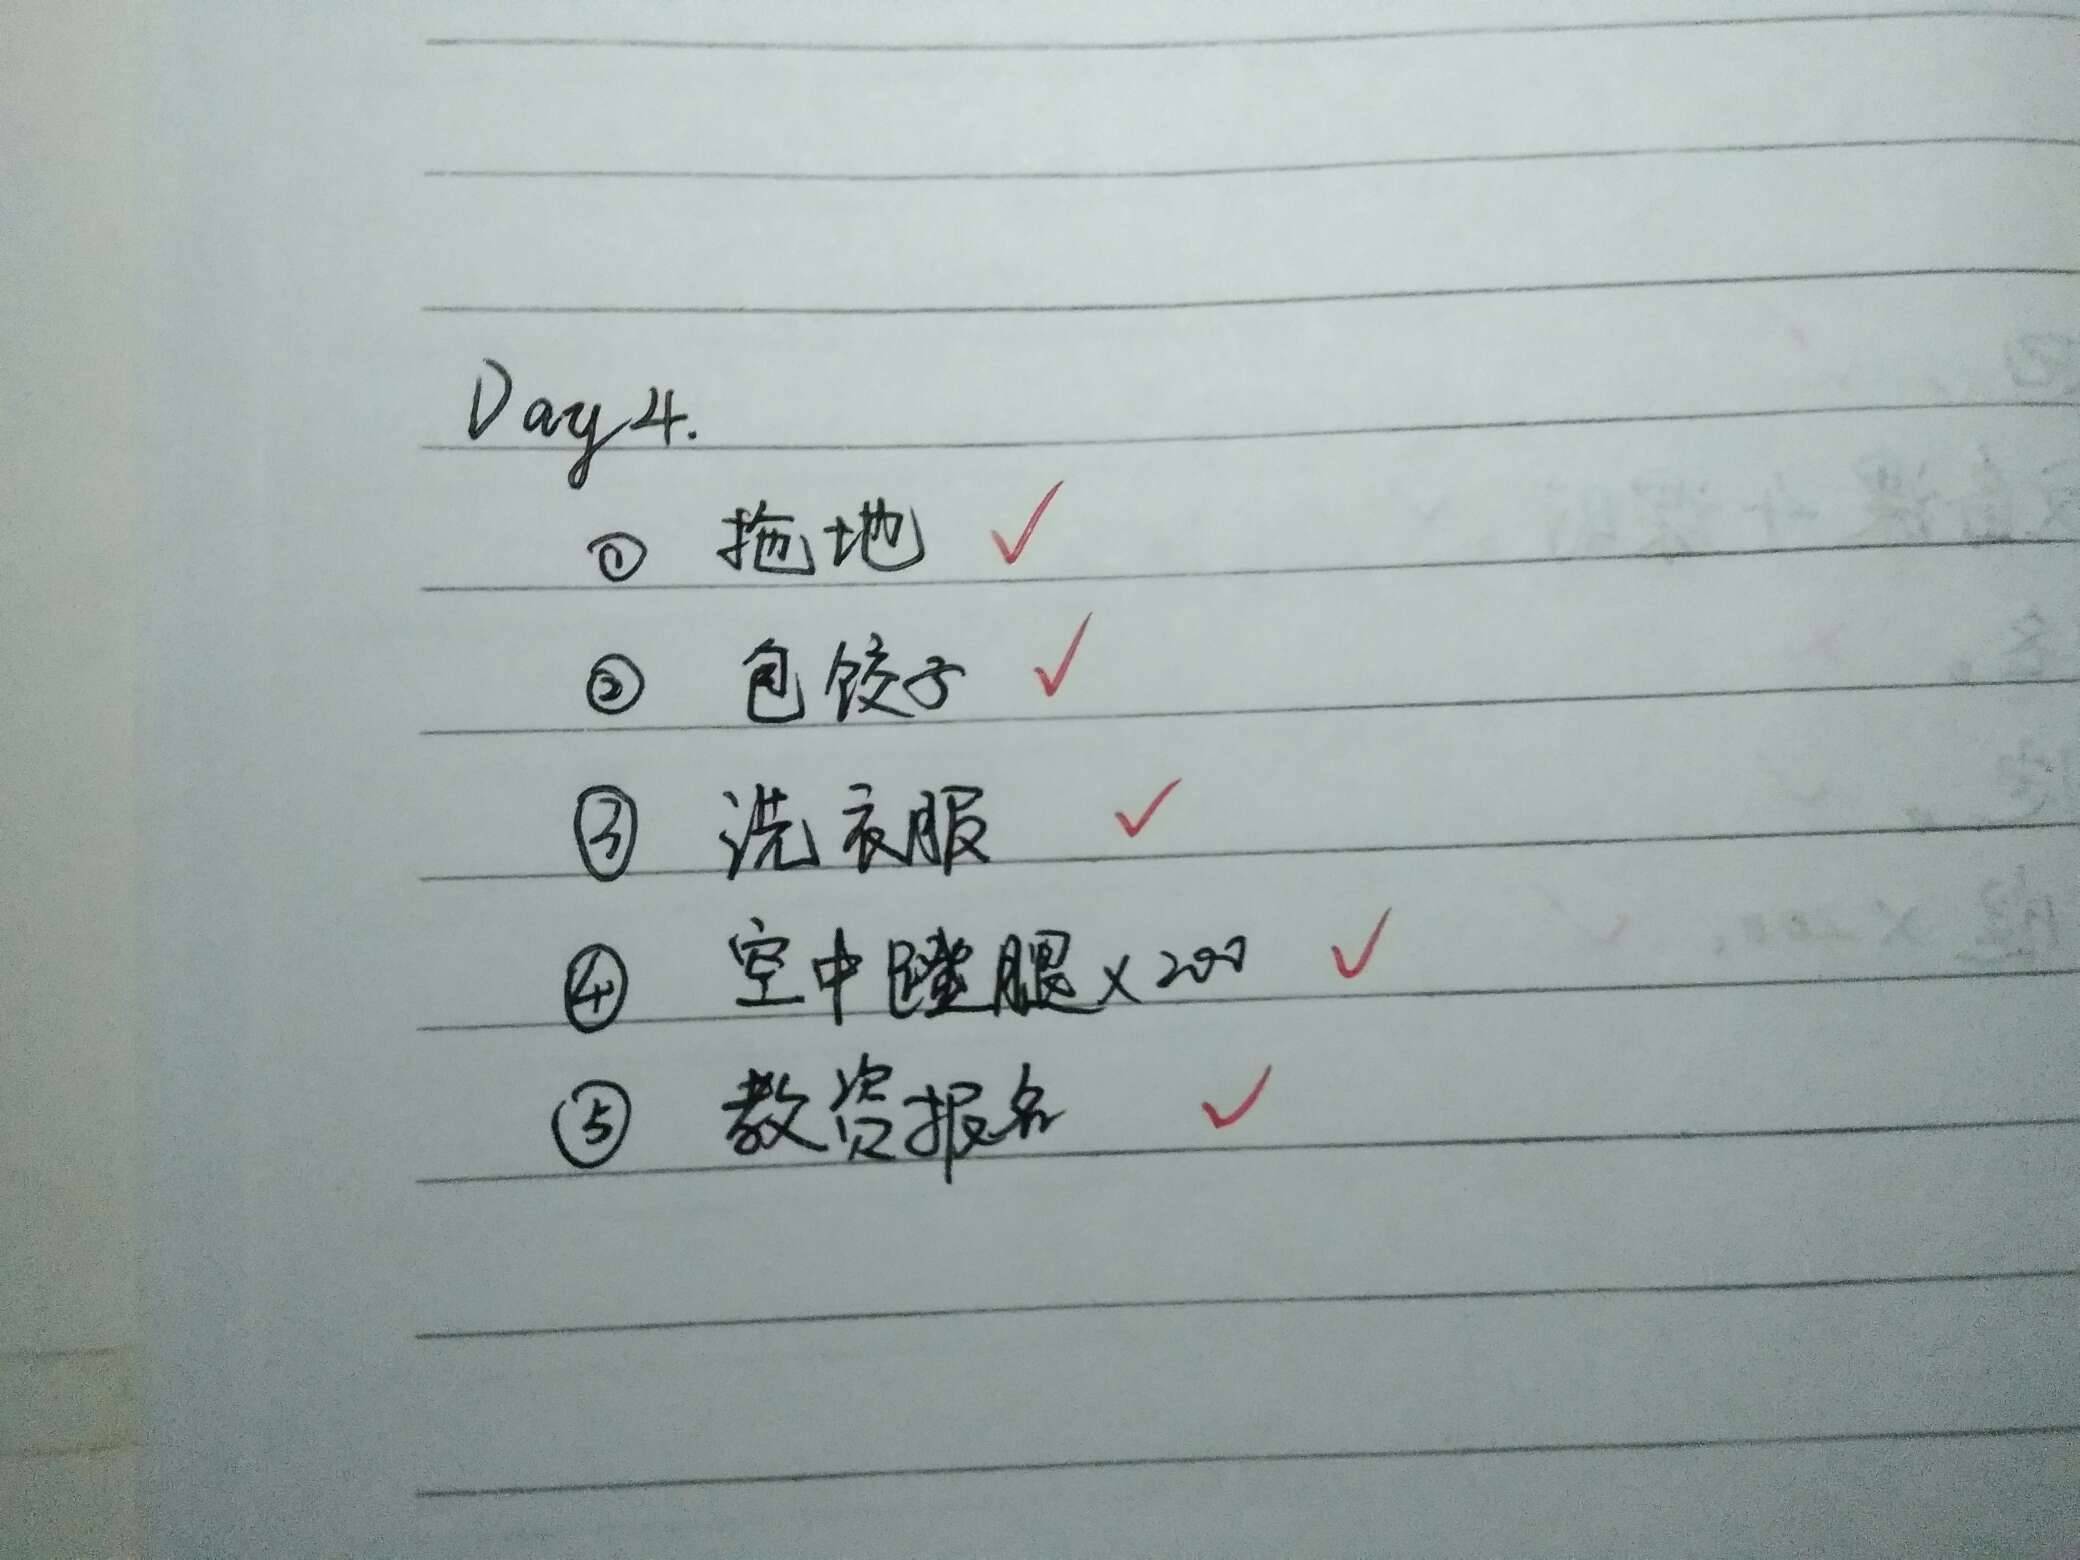 Day 4.
① 拖地 ✓
② 包饺子 ✓
③ 洗衣服 ✓
④ 空中蹬腿×200 ✓
⑤ 教资报名 ✓